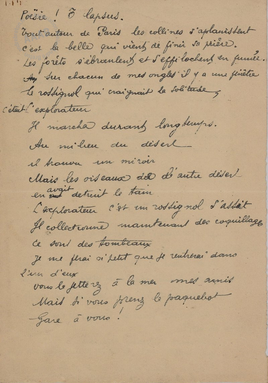 Poésie ! O lapsus.
Tout autour de Paris les collines s'aplanissent
c'est la belle qui vient de finir sa prière.
Les forêts s'ébranlent et s'effilochent en fumée.
sur chacun de mes ongles il y a une fenêtre
le rossignol qui craignait la solitude
c'était l'explorateur
Il marcha durant longtemps.
Au milieu du désert
il trouva un miroir
Mais les oiseaux de l'autre désert
en avait détruit le tain
L'explorateur c'est un rossignol s'assit
Il collectionne maintenant des coquillages
ce sont des tombeaux
Je me ferai si petit que je rentrerai dans
l'un d'eux
vous le jetterez à la mer mes amis
Mais si vous prenez le paquebot
Gare à vous !